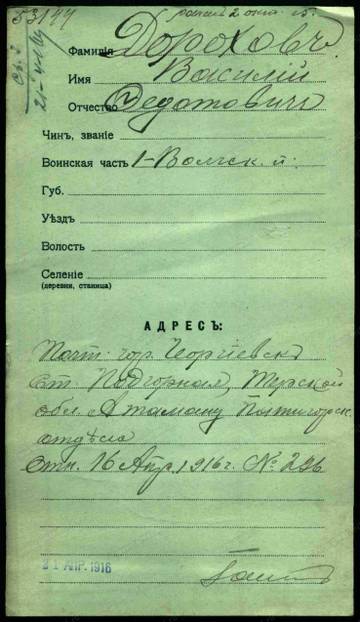 53177
ранен 2 окт. 15.
21-44/19
Фамилія Дороховъ
Имя Василій
Отчество Федотовичъ
Чинъ, званіе
Воинская часть 1-Волгск. п.
Губ.
Уѣздъ
Волость
Селеніе
(деревня, станица)
АДРЕСЪ:
Почт. гор. Георгіевскъ
Ст. Подгорная, Терской
обл. Атаману Пятигорск.
отдѣла
Отн. 16 Апр. 1916 г. № 226
21 АПР. 1916